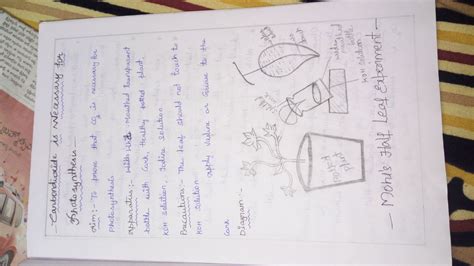 Carbondioxide is Necessary for
Photosynthesis
Aim:- To prove that CO2 is necessary for
photosynthesis
Apparatus:- Wide Mouthed transparent
bottle with Cork, healthy potted plant,
KOH solution, Iodine solution
Precautions:- The leaf should not touch to
KOH solution. apply vaseline or Grease to the
Cork
Diagram:-
leaf
Cork
wide
mouthed
bottle
KOH solution
potted
plant
- Moll's Half Leaf Experiment -